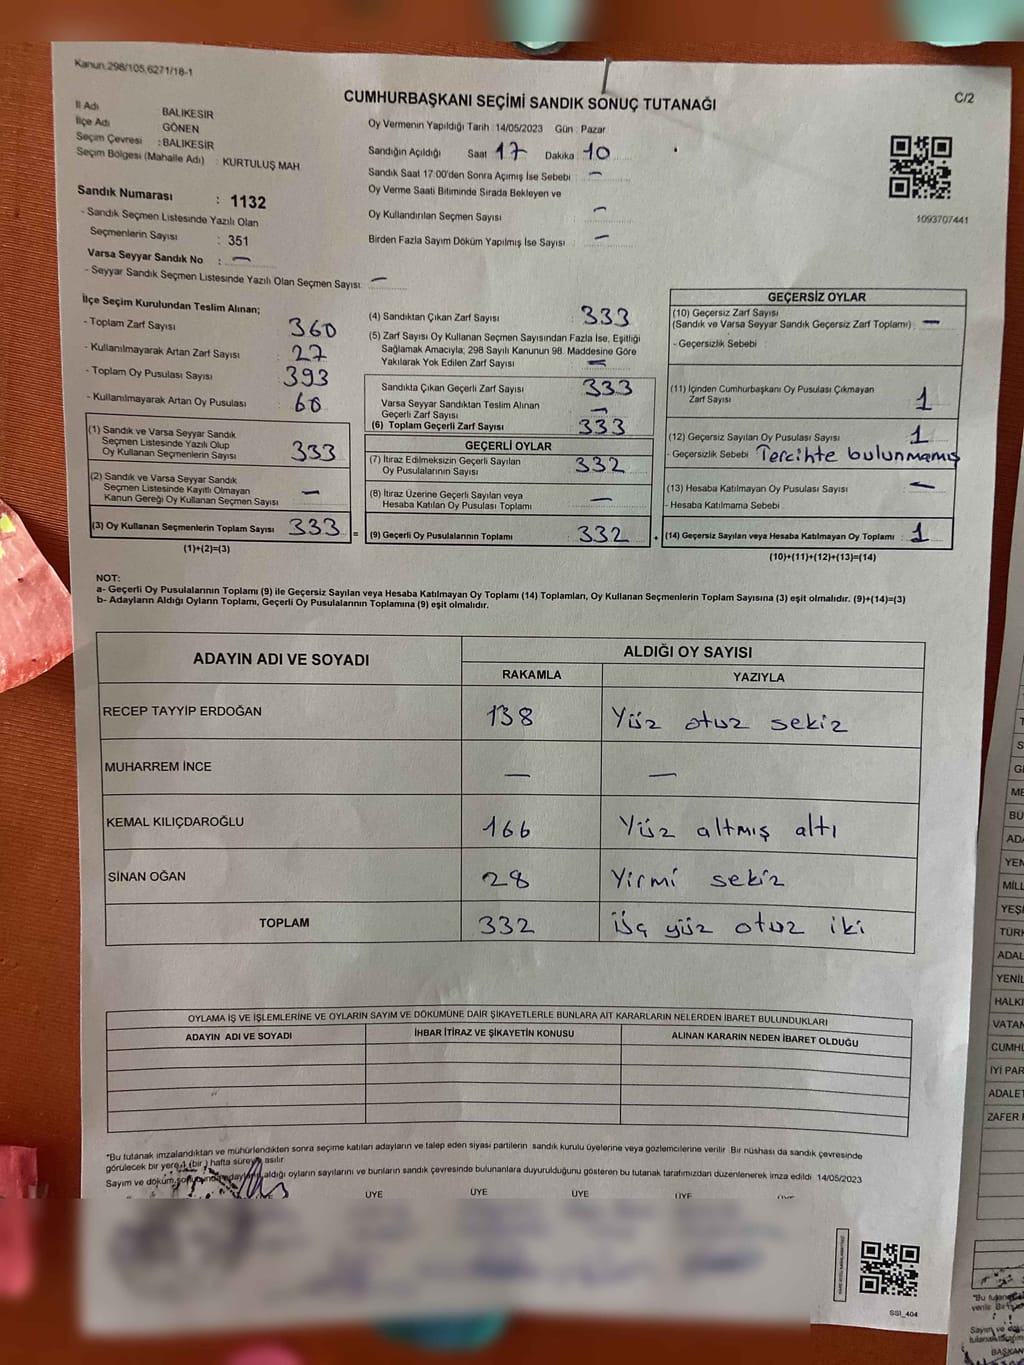 Kanun.298/105,6271/18-1
CUMHURBAŞKANI SEÇİMİ SANDIK SONUÇ TUTANAĞI
C/2
İl Adı BALIKESİR
İlçe Adı GÖNEN
Seçim Çevresi : BALIKESİR
Seçim Bölgesi (Mahalle Adı) : KURTULUŞ MAH
Sandık Numarası : 1132
- Sandık Seçmen Listesinde Yazılı Olan
Seçmenlerin Sayısı : 351
Varsa Seyyar Sandık No : –
- Seyyar Sandık Seçmen Listesinde Yazılı Olan Seçmen Sayısı: –
Oy Vermenin Yapıldığı Tarih : 14/05/2023 Gün : Pazar
Sandığın Açıldığı Saat 17 Dakika : 10
Sandık Saat 17:00'den Sonra Açımış İse Sebebi : –
Oy Verme Saati Bitiminde Sırada Bekleyen ve
Oy Kullandırılan Seçmen Sayısı –
Birden Fazla Sayım Döküm Yapılmış İse Sayısı : –
1093707441
İlçe Seçim Kurulundan Teslim Alınan;
- Toplam Zarf Sayısı 360
- Kullanılmayarak Artan Zarf Sayısı 27
- Toplam Oy Pusulası Sayısı 393
- Kullanılmayarak Artan Oy Pusulası 60
(1) Sandık ve Varsa Seyyar Sandık
Seçmen Listesinde Yazılı Olup
Oy Kullanan Seçmenlerin Sayısı 333
(2) Sandık ve Varsa Seyyar Sandık
Seçmen Listesinde Kayıtlı Olmayan
Kanun Gereği Oy Kullanan Seçmen Sayısı –
(3) Oy Kullanan Seçmenlerin Toplam Sayısı 333 =
(1)+(2)=(3)
(4) Sandıktan Çıkan Zarf Sayısı : 333
(5) Zarf Sayısı Oy Kullanan Seçmen Sayısından Fazla İse, Eşitliği
Sağlamak Amacıyla, 298 Sayılı Kanunun 98. Maddesine Göre
Yakılarak Yok Edilen Zarf Sayısı –
Sandıkta Çıkan Geçerli Zarf Sayısı : 333
Varsa Seyyar Sandıktan Teslim Alınan
Geçerli Zarf Sayısı –
(6) Toplam Geçerli Zarf Sayısı : 333
GEÇERLİ OYLAR
(7) İtiraz Edilmeksizin Geçerli Sayılan
Oy Pusulalarının Sayısı 332
(8) İtiraz Üzerine Geçerli Sayılan veya
Hesaba Katılan Oy Pusulası Toplamı –
(9) Geçerli Oy Pusulalarının Toplamı : 332 +
GEÇERSİZ OYLAR
(10) Geçersiz Zarf Sayısı
(Sandık ve Varsa Seyyar Sandık Geçersiz Zarf Toplamı) : –
- Geçersizlik Sebebi :
(11) İçinden Cumhurbaşkanı Oy Pusulası Çıkmayan
Zarf Sayısı 1
(12) Geçersiz Sayılan Oy Pusulası Sayısı : 1
- Geçersizlik Sebebi Tercihte bulunmamış
(13) Hesaba Katılmayan Oy Pusulası Sayısı : –
- Hesaba Katılmama Sebebi
(14) Geçersiz Sayılan veya Hesaba Katılmayan Oy Toplamı : 1
(10)+(11)+(12)+(13)=(14)
NOT:
a- Geçerli Oy Pusulalarının Toplamı (9) ile Geçersiz Sayılan veya Hesaba Katılmayan Oy Toplamı (14) Toplamları, Oy Kullanan Seçmenlerin Toplam Sayısına (3) eşit olmalıdır. (9)+(14)=(3)
b- Adayların Aldığı Oyların Toplamı, Geçerli Oy Pusulalarının Toplamına (9) eşit olmalıdır.
ADAYIN ADI VE SOYADI ALDIĞI OY SAYISI
RAKAMLA YAZIYLA
RECEP TAYYİP ERDOĞAN 138 Yüz otuz sekiz
MUHARREM İNCE – –
KEMAL KILIÇDAROĞLU 166 Yüz altmış altı
SİNAN OĞAN 28 Yirmi sekiz
TOPLAM 332 üç yüz otuz iki
OYLAMA İŞ VE İŞLEMLERİNE VE OYLARIN SAYIM VE DÖKÜMÜNE DAİR ŞİKAYETLERLE BUNLARA AİT KARARLARIN NELERDEN İBARET BULUNDUKLARI
ADAYIN ADI VE SOYADI İHBAR İTİRAZ VE ŞİKAYETİN KONUSU ALINAN KARARIN NEDEN İBARET OLDUĞU
"Bu tutanak imzalandıktan ve mühürlendikten sonra seçime katılan adayların ve talep eden siyasi partilerin sandık kurulu üyelerine veya gözlemcilerine verilir. Bir nüshası da sandık çevresinde
görülecek bir yere 1 (bir) hafta süreyle asılır.
Sayım ve döküm aldığı oyların sayılarını ve bunların sandık çevresinde bulunanlara duyurulduğunu gösteren bu tutanak tarafımızdan düzenlenerek imza edildi 14/05/2023
ÜYE ÜYE ÜYE ÜYE
SSI_404
VATAN
İYİ PAR
ADALET
ZAFER